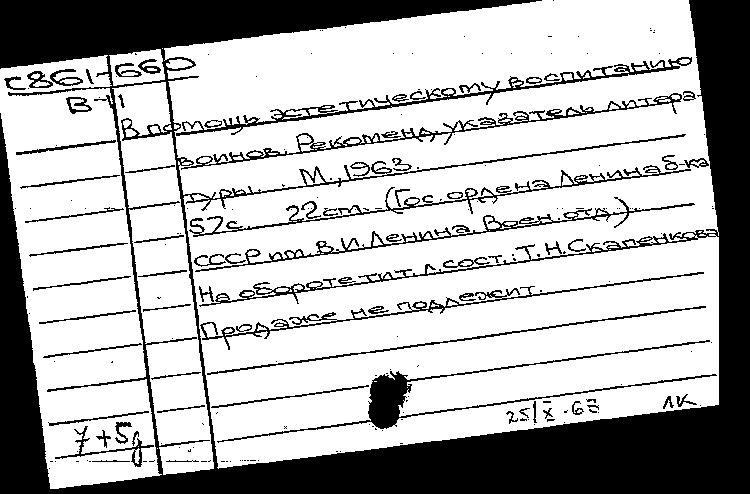 С861-660
В-11
В помощь эстетическому воспитанию
воинов. Рекоменд. указатель литера-
туры. М., 1963.
57с. 22 cm. (Гос. ордена Ленина б-ка
СССР им. В.И. Ленина. Воен. отд.)
На обороте тит. л. сост.: Т.Н. Скапенкова
Продаже не подлежит.
25/X-63 ЛК
7+5д